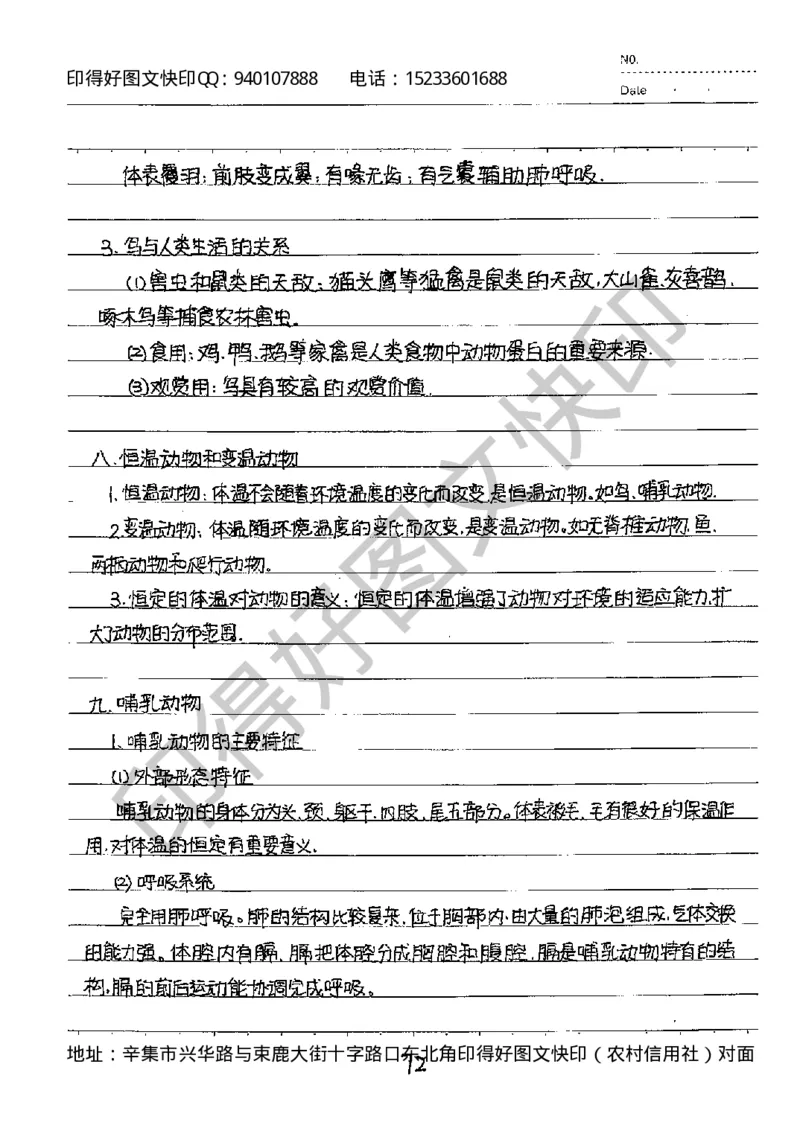 印得好图文快印QQ：940107888 电话：15233601688
NO.
Date
体表覆羽；前肢变成翼；有喙无齿；有气囊辅助肺呼吸.
3.鸟与人类生活的关系
(1)害虫和鼠类的天敌：猫头鹰等猛禽是鼠类的天敌,大山雀.灰喜鹊、
啄木鸟等捕食农林害虫。
(2)食用：鸡、鸭、鹅等家禽是人类食物中动物蛋白的重要来源.
(3)观赏用：鸟具有较高的观赏价值.
八.恒温动物和变温动物
1.恒温动物：体温不会随着环境温度的变化而改变,是恒温动物。如鸟、哺乳动物.
2.变温动物：体温随环境温度的变化而改变,是变温动物。如无脊椎动物.鱼.
两栖动物和爬行动物。
3.恒定的体温对动物的意义：恒定的体温增强了动物对环境的适应能力,扩
大了动物的分布范围.
九.哺乳动物
1.哺乳动物的主要特征
(1)外部形态特征
哺乳动物的身体分为头.颈.躯干.四肢.尾五部分。体表被毛,毛有很好的保温作
用,对体温的恒定有重要意义.
(2)呼吸系统
完全用肺呼吸。肺的结构比较复杂,位于胸部内,由大量的肺泡组成,气体交换
的能力强。体腔内有膈、膈把体腔分成胸腔和腹腔.膈是哺乳动物特有的结
构,膈的前后运动能协调完成呼吸。
地址：辛集市兴华路与束鹿大街十字路口东北角印得好图文快印（农村信用社）对面
72
印得好图文快印